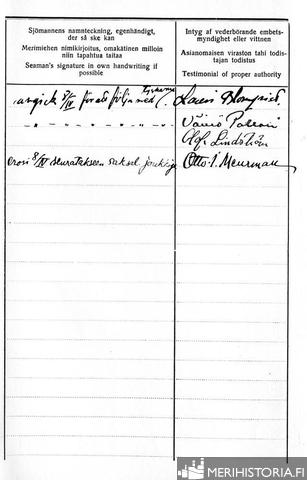 Sjömannens namnteckning, egenhändigt,
der så ske kan
Merimiehen nimikirjoitus, omakätinen milloin
niin tapahtua taitaa
Seaman's signature in own handwriting if
possible
Intyg af vederbörande embets-
myndighet eller vittnen
Asianomaisen viraston tahi todis-
tajan todistus
Testimonial of proper authority
8/IV för att följa med Lauri Blomqvist.
" " " " " " Väinö
Olof Lindström
erosi 8/IV seuratakseen saksal. joukkoja Otto I. Meurman
MERIHISTORIA.FI